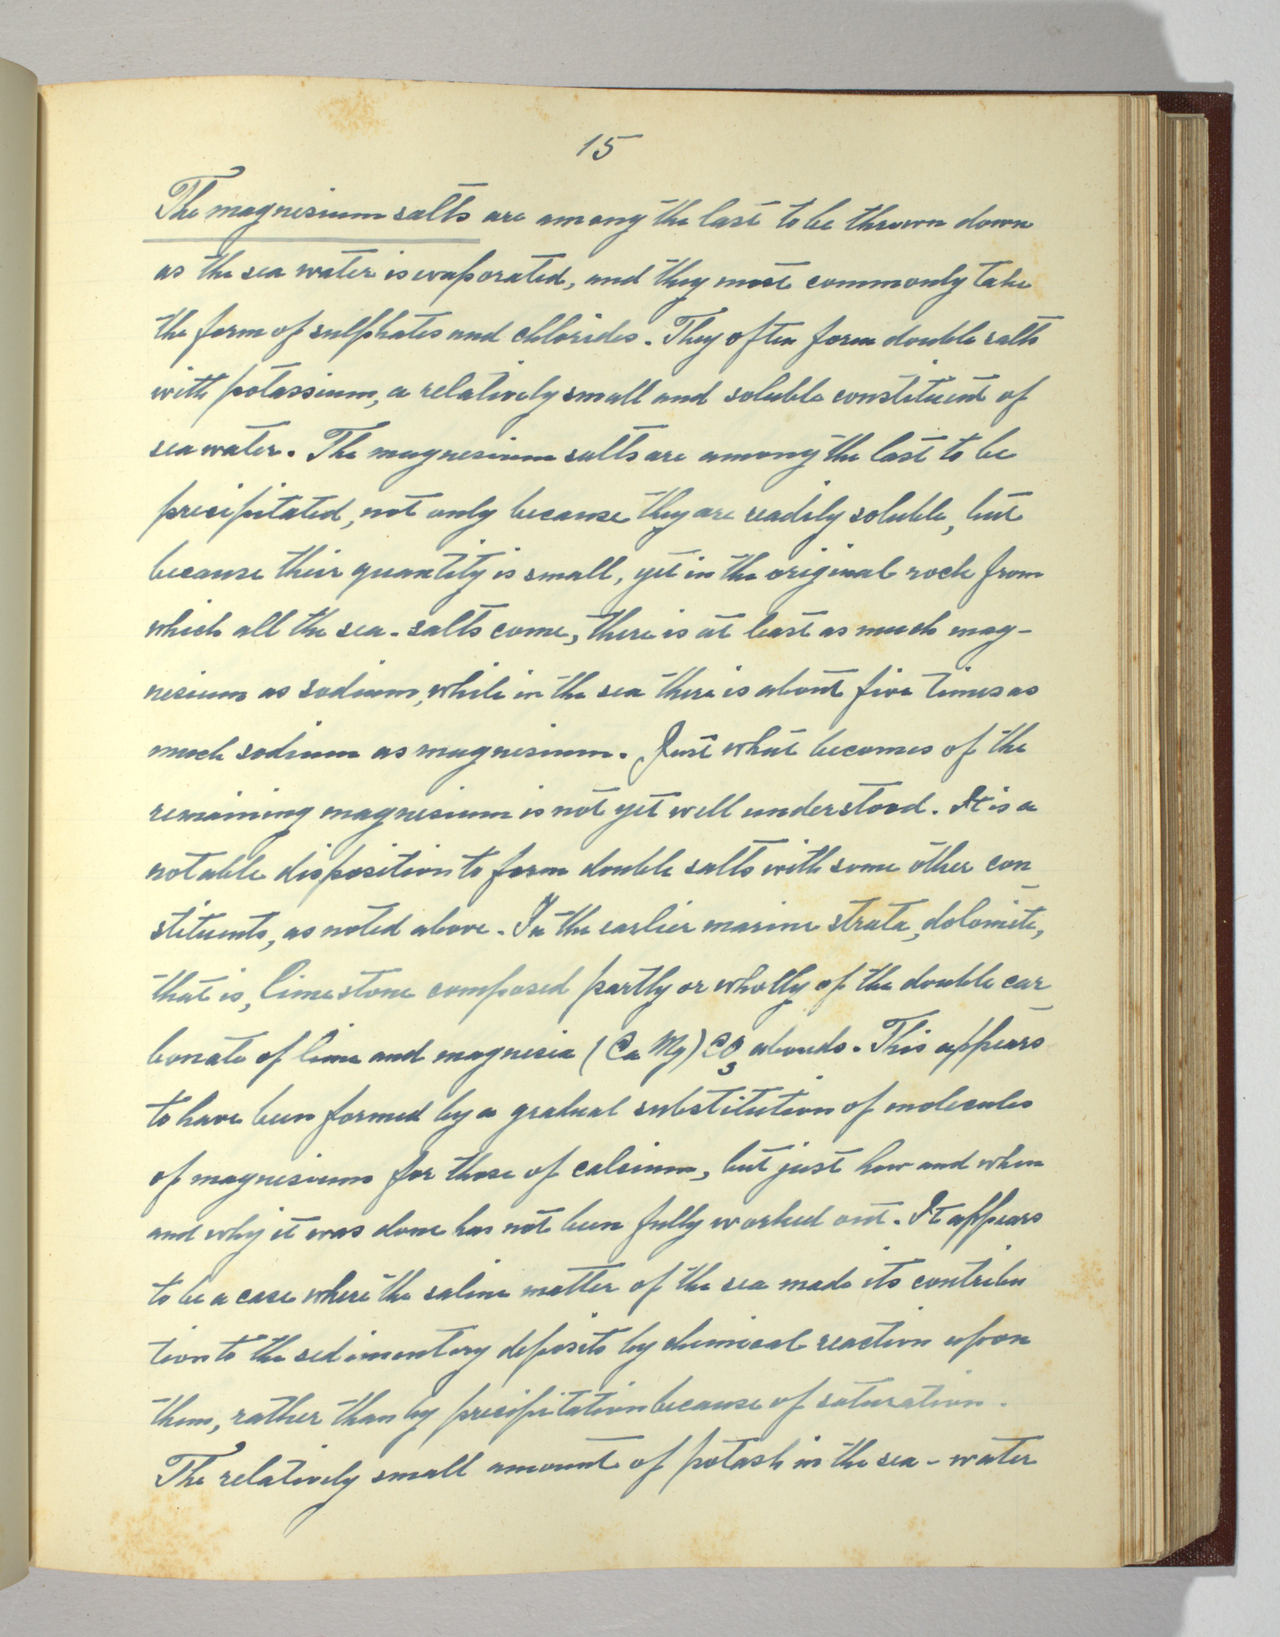 15
The magnesium salts are among the last to be thrown down
as the sea water is evaporated, and they most commonly take
the form of sulphates and chlorides. They often form double salts
with potassium, a relatively small and soluble constituent of
sea water. The magnesium salts are among the last to be
precipitated, not only because they are readily soluble, but
because their quantity is small, yet in the original rock from
which all the sea-salts come, there is at least as much mag-
nesium as sodium, while in the sea there is about five times as
much sodium as magnesium. Just what becomes of the
remaining magnesium is not yet well understood. It is a
notable disposition to form double salts with some other con
stituents, as noted above. In the earlier marine strata, dolomite,
that is, limestone composed partly or wholly of the double car
bonate of lime and magnesia (Ca Mg) CO3 abounds. This appears
to have been formed by a gradual substitution of molecules
of magnesium for those of calcium, but just how and when
and why it was done has not been fully worked out. It appears
to be a case where the saline matter of the sea made its contribu
tion to the sedimentary deposits by chemical reaction upon
them, rather than by precipitation because of saturation.
The relatively small amount of potash in the sea-water